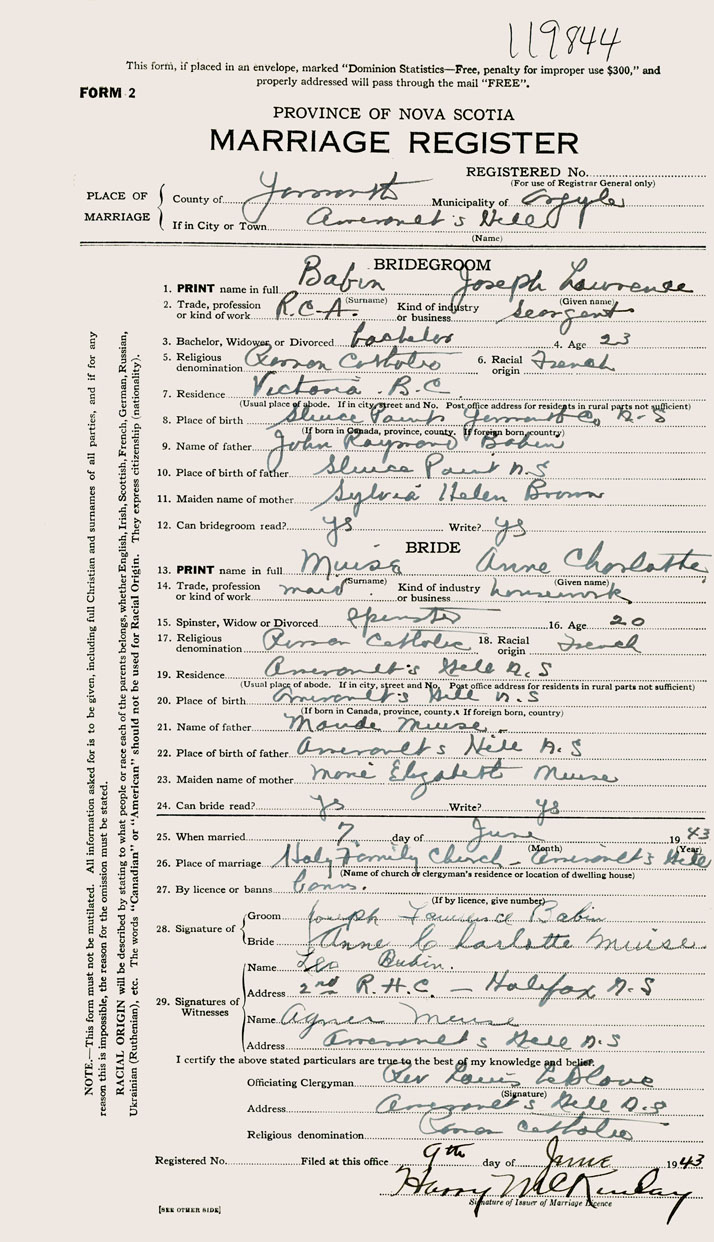 119844
This form, if placed in an envelope, marked "Dominion Statistics—Free, penalty for improper use $300," and
properly addressed will pass through the mail "FREE".
FORM 2
PROVINCE OF NOVA SCOTIA
MARRIAGE REGISTER
REGISTERED No.
(For use of Registrar General only)
PLACE OF MARRIAGE
County of Yarmouth Municipality of Argyle
If in City or Town Amerault's Hill
(Name)
BRIDEGROOM
1. PRINT name in full Babin Joseph Lawrence
(Surname) (Given name)
2. Trade, profession or kind of work R.C.A. Kind of industry or business Seargent
3. Bachelor, Widower or Divorced bachelor 4. Age 23
5. Religious denomination Roman Catholic 6. Racial origin French
7. Residence Victoria B.C.
(Usual place of abode. If in city, street and No. Post office address for residents in rural parts not sufficient)
8. Place of birth Sluice Point Yarmouth Co. N-S
(If born in Canada, province, county. If foreign born, country)
9. Name of father John Raymond Babin
10. Place of birth of father Sluice Point N.S
11. Maiden name of mother Sylvia Helen Brown
12. Can bridegroom read? ys Write? ys
BRIDE
13. PRINT name in full Muise Anne Charlotte
(Surname) (Given name)
14. Trade, profession or kind of work maid Kind of industry or business housework
15. Spinster, Widow or Divorced Spinster 16. Age 20
17. Religious denomination Roman Catholic 18. Racial origin French
19. Residence Amerault's Hill N.S
(Usual place of abode. If in city, street and No. Post office address for residents in rural parts not sufficient)
20. Place of birth Amerault's Hill N.S
(If born in Canada, province, county. If foreign born, country)
21. Name of father Muise
22. Place of birth of father Amerault's Hill N.S
23. Maiden name of mother Marie Elizabeth Muise
24. Can bride read? ys Write? ys
25. When married 7 day of June 1943
(Month) (Year)
26. Place of marriage Holy Family Church - Amerault's Hill
(Name of church or clergyman's residence or location of dwelling house)
27. By licence or banns banns.
(If by licence, give number)
28. Signature of
Groom Joseph Lawrence Babin
Bride Anne Charlotte Muise
29. Signatures of Witnesses
Name Leo Babin.
Address 2nd R.H.C. - Halifax N.S
Name Agnes Muise
Address Amerault's Hill N.S
I certify the above stated particulars are true to the best of my knowledge and belief.
Officiating Clergyman Rev Louis LeBlanc
(Signature)
Address Amerault's Hill N.S
Religious denomination Roman Catholic
Registered No. Filed at this office 9th day of June 1943
Harry McKinlay
Signature of Issuer of Marriage Licence
[SEE OTHER SIDE]
NOTE.—This form must not be mutilated. All information asked for is to be given, including full Christian and surnames of all parties, and if for any
reason this is impossible, the reason for the omission must be stated.
RACIAL ORIGIN will be described by stating to what people or race each of the parents belongs, whether English, Irish, Scottish, French, German, Russian,
Ukrainian (Ruthenian), etc. The words "Canadian" or "American" should not be used for Racial Origin. They express citizenship (nationality).